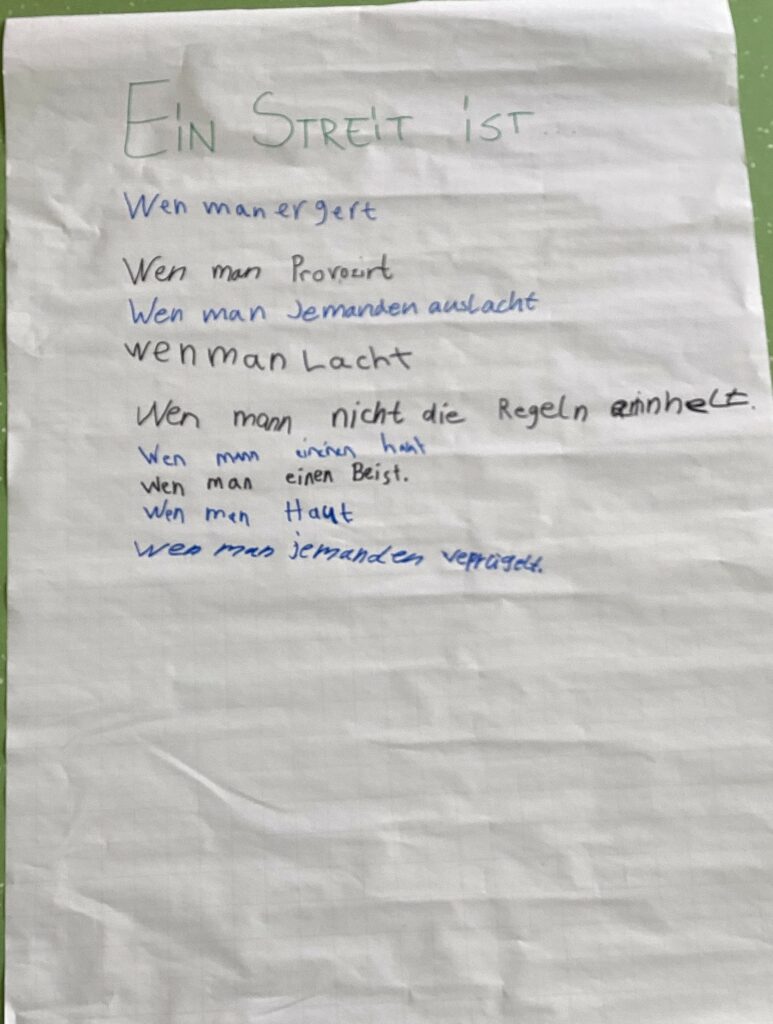 EIN STREIT IST...
Wen man ergert
Wen man Provozirt
Wen man Jemanden auslacht
wen man Lacht
Wen mann nicht die Regeln einhelt.
Wen man einen haut
Wen man einen Beist.
Wen man Haut
wen man jemanden veprügelt.